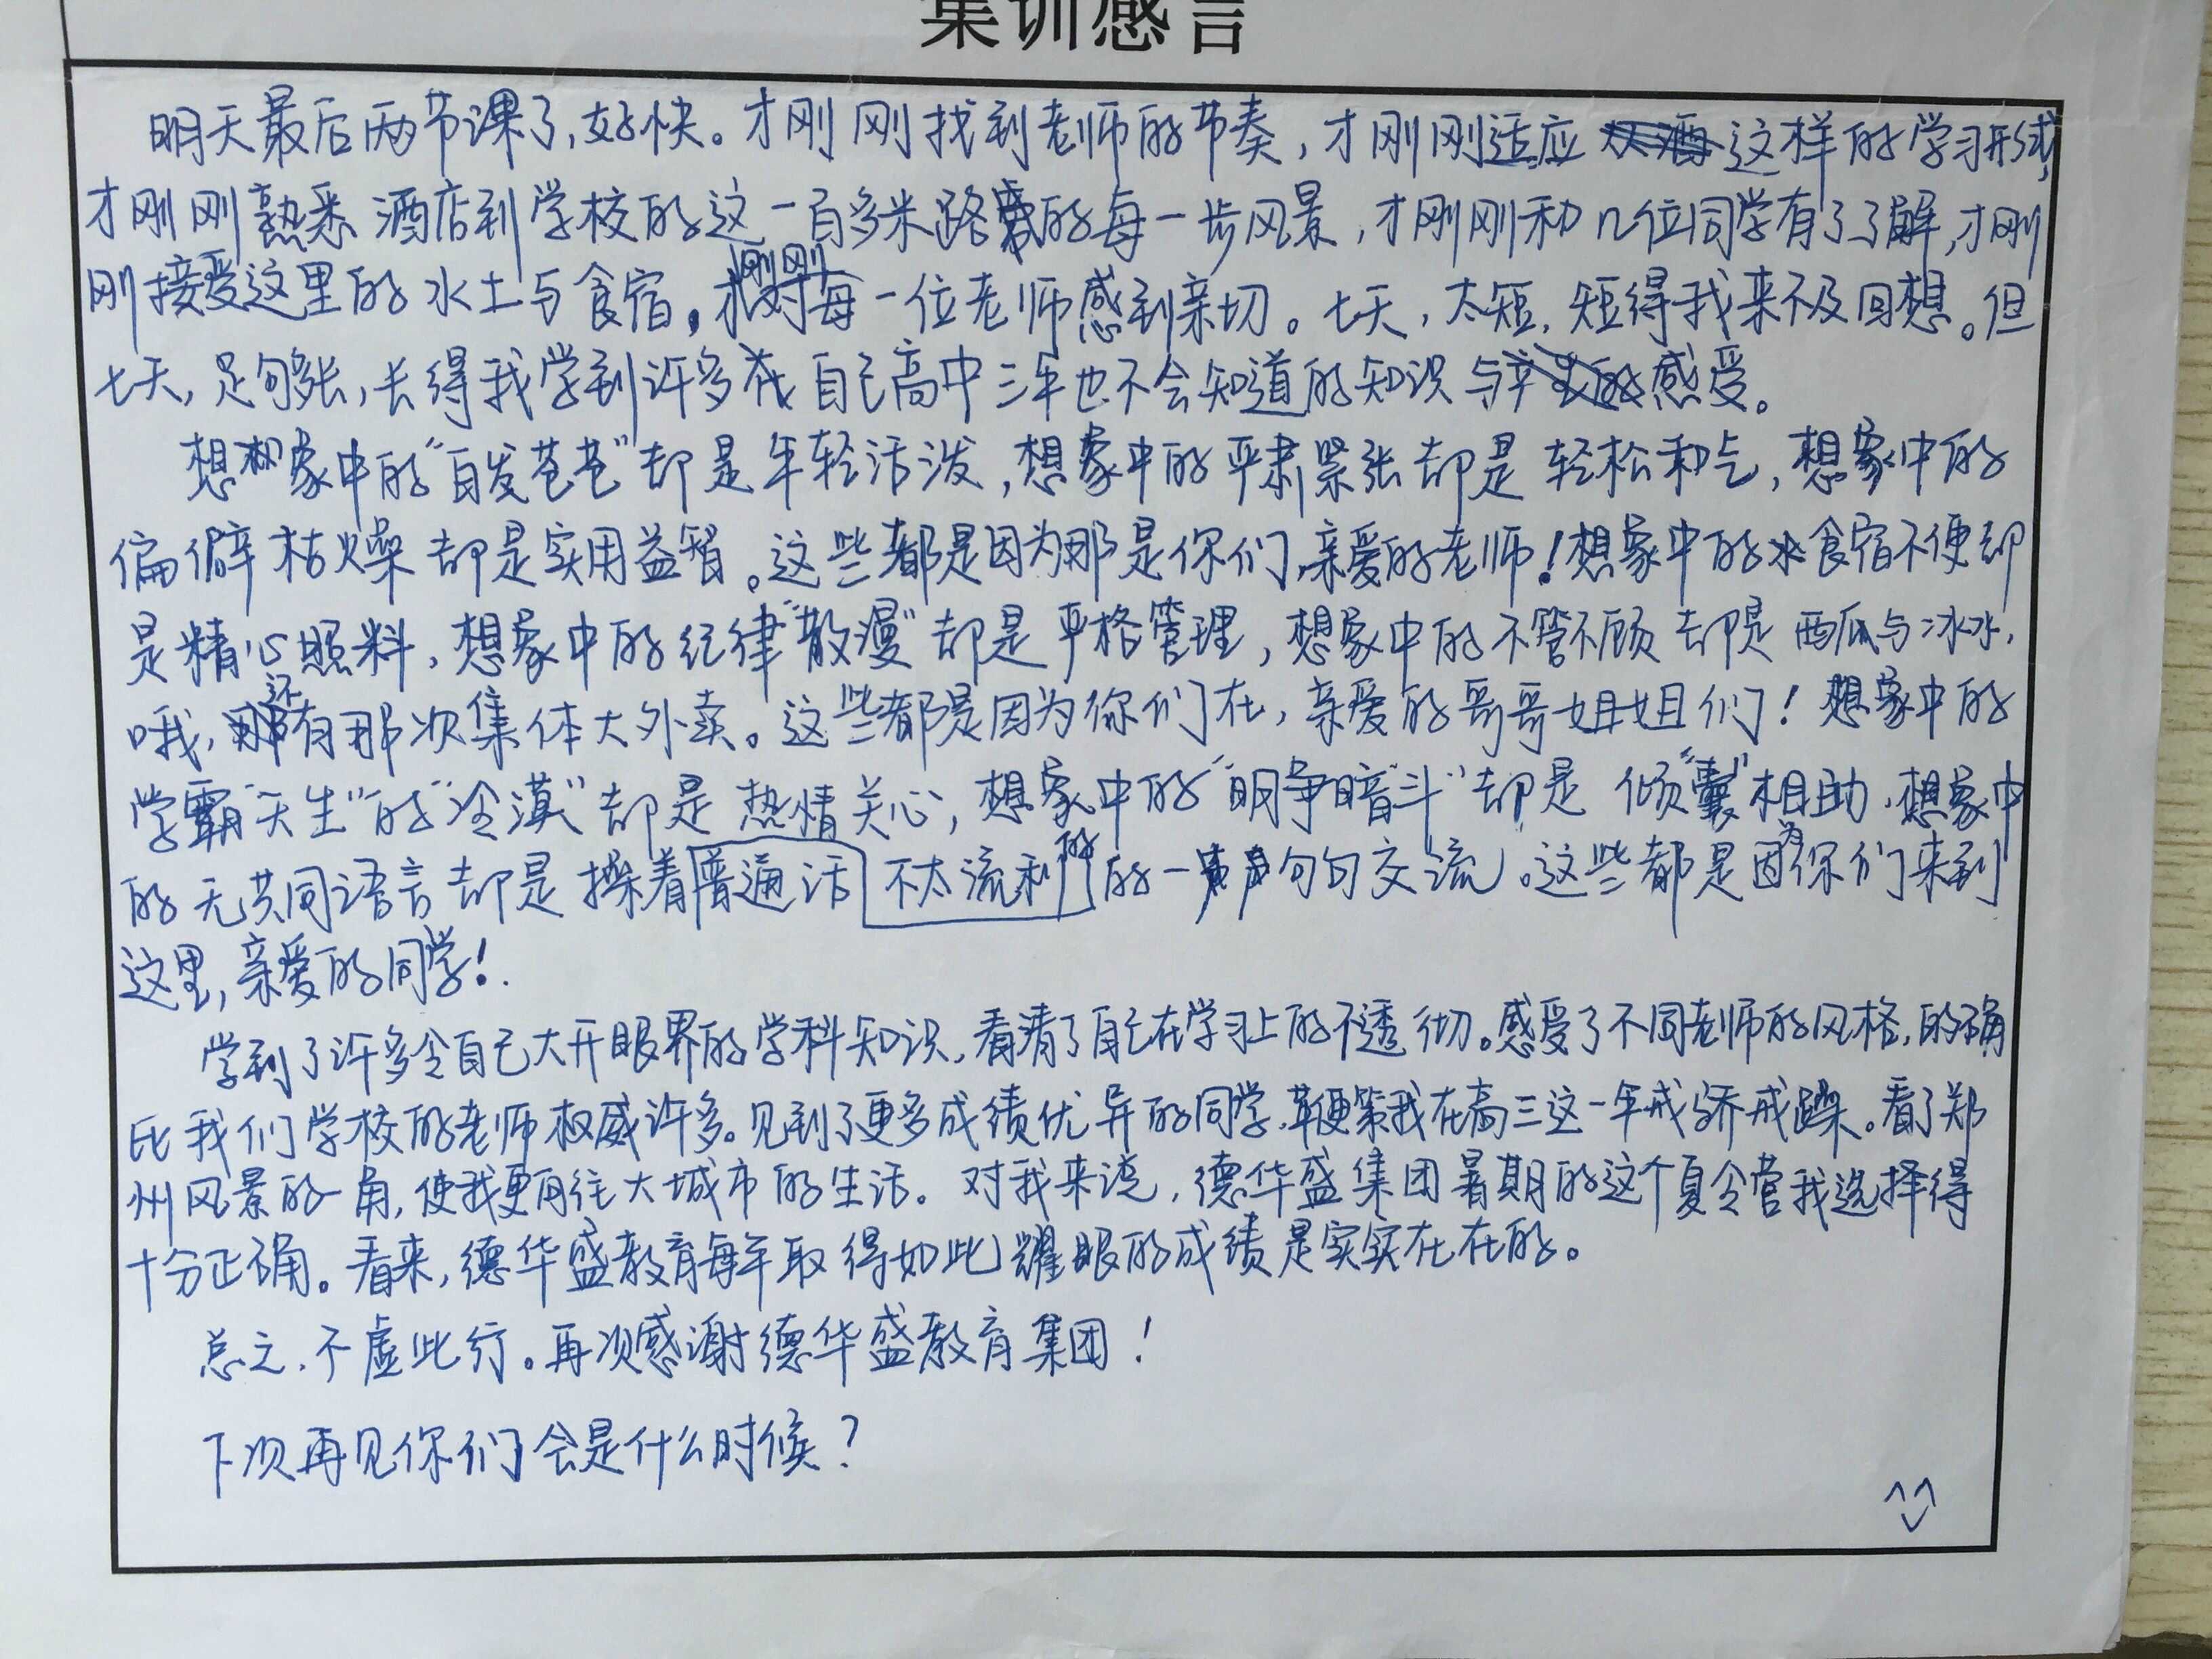 集训感言
明天最后两节课了,好快。才刚刚找到老师的节奏,才刚刚适应这样的学习形式,
才刚刚熟悉酒店到学校的这一百多米路的每一步风景,才刚刚和几位同学有了了解,才刚
刚接受这里的水土与食宿,才刚刚对每一位老师感到亲切。七天,太短,短得我来不及回想。但
七天,足够长,长得我学到许多在自己高中三年也不会知道的知识与感受。
想象中的“白发苍苍”却是年轻活泼,想象中的严肃紧张却是轻松和气,想象中的
偏僻枯燥却是实用益智。这些都是因为那是你们,亲爱的老师!想象中的食宿不便却
是精心照料,想象中的纪律“散漫”却是严格管理,想象中的不管不顾却是西瓜与冰水,
哦,还有那次集体大外卖。这些都是因为你们在,亲爱的哥哥姐姐们!想象中的
学霸“天生”的“冷漠”却是热情关心,想象中的“明争暗斗”却是倾“囊”相助,想象中
的无共同语言却是操着普通话不太流利的的一声声句句交流。这些都是因为你们来到
这里,亲爱的同学!
学到了许多令自己大开眼界的学科知识,看清了自己在学习上的不透彻。感受了不同老师的风格,的确
比我们学校的老师权威许多。见到了更多成绩优异的同学,鞭策我在高三这一年戒骄戒躁。看了郑
州风景的一角,使我更向往大城市的生活。对我来说,德华盛集团暑期的这个夏令营我选择得
十分正确。看来,德华盛教育每年取得如此耀眼的成绩是实实在在的。
总之,不虚此行。再次感谢德华盛教育集团!
下次再见你们会是什么时候?